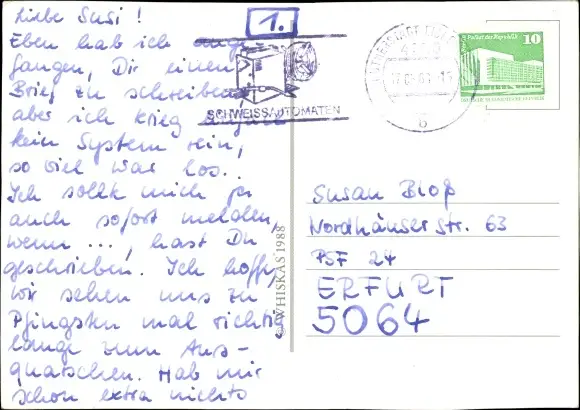 Liebe Susi!
1.
Eben hab ich ange-
fangen, Dir einen
Brief zu schreiben
aber ich krieg
kein System rein,
so viel war los..
Ich sollte mich ja
auch sofort melden,
wenn ..., hast Du
geschrieben. Ich hoffe,
wir sehen uns zu
Pfingsten mal richtig
lange zum Aus-
quatschen. Hab mir
schon extra nichts
SCHWEISSAUTOMATEN
b
10
© WHISKAS 1988
Susan Bloß
Nordhäuser Str. 63
PSF 24
ERFURT
5064